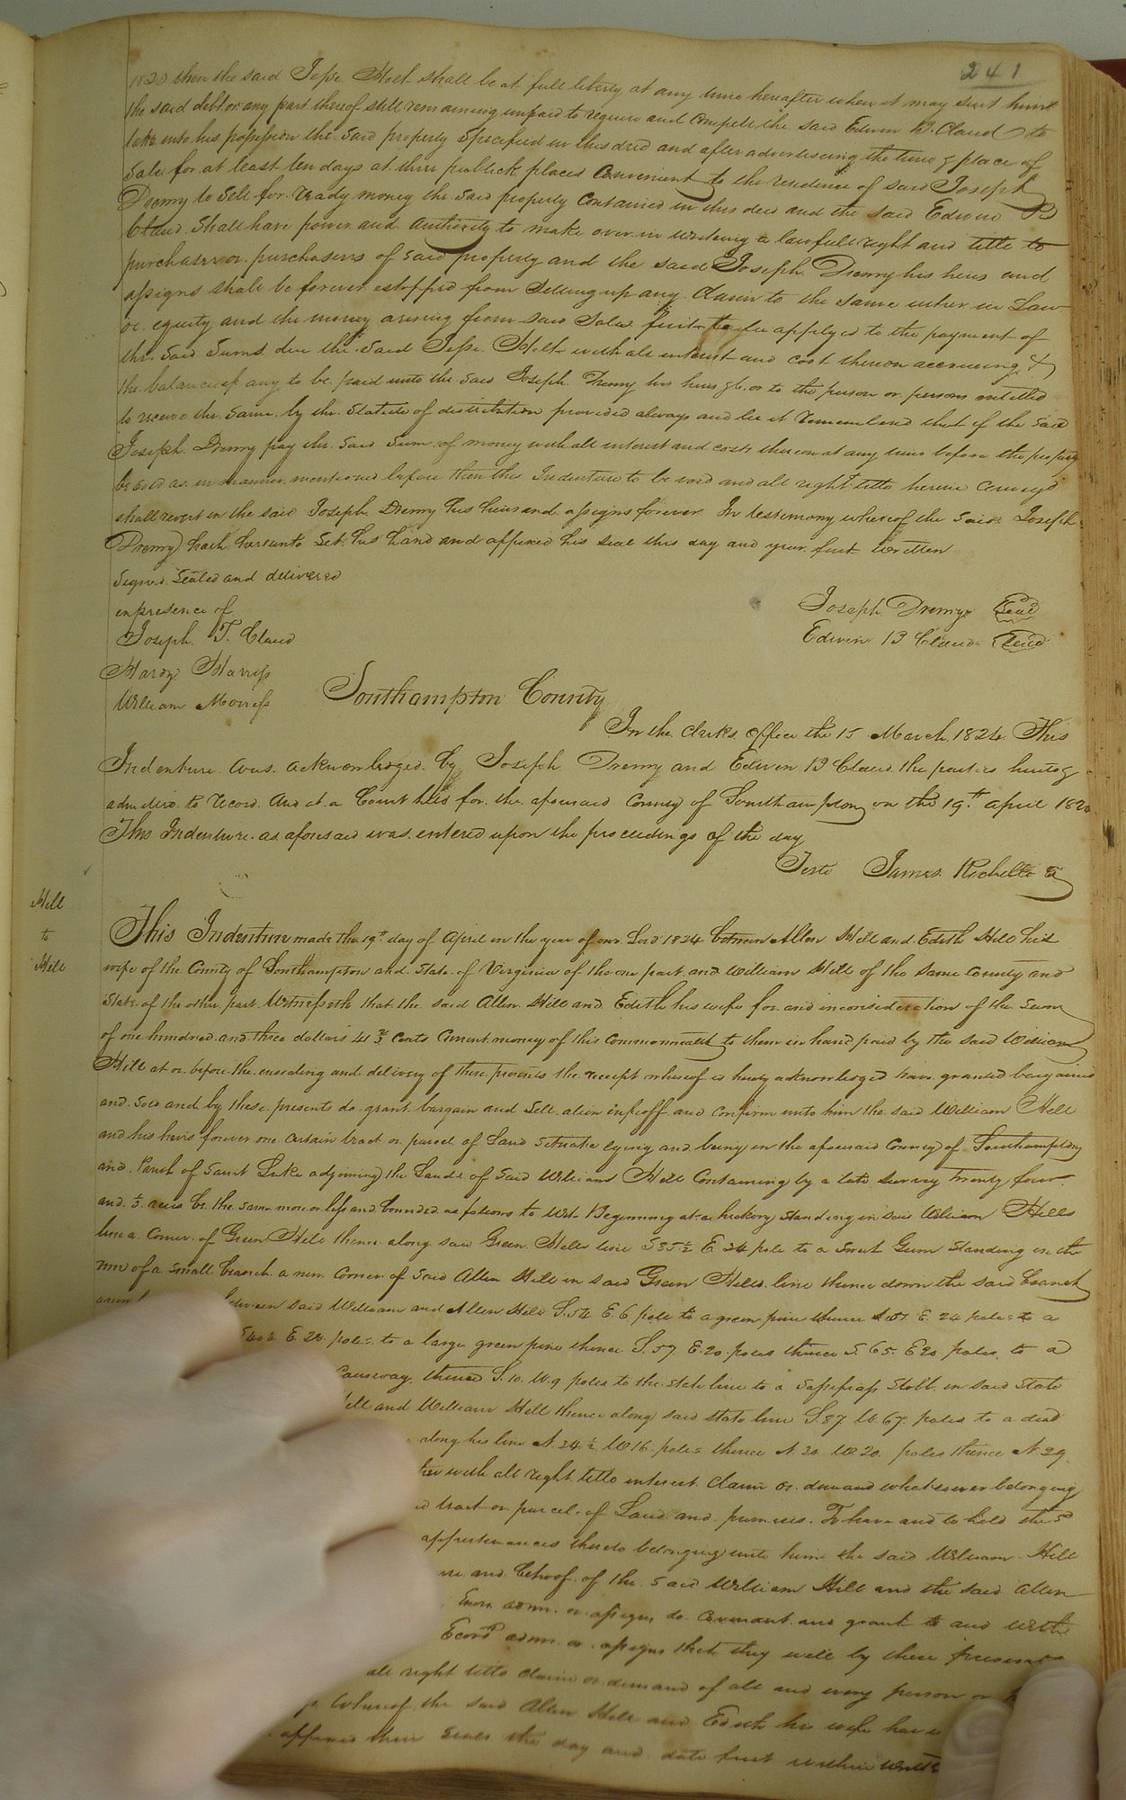 241
then the said Jesse Holt shall be at full liberty at any time hereafter when it may suit him
the said debt or any part thereof still remaining unpaid to require and Compell the said Edwin B. Claud to
take into his possession the said property specified in this deed and after advertiseing the time & place of
Sale for at least ten days at three publick places Convenient to the residence of said Joseph
Dremy to Sell for ready money the said property Contained in this deed and the said Edwin B
Claud Shall have power and authority to make over in writing a lawfull right and title to
purchaser or purchasers of said property and the said Joseph Dremy his heirs and
assigns shall be forever estopped from Setting up any Claim to the same either in Law
or equity and the money arising from said Sales first to be applyed to the payment of
the said Sums due the said Jesse Holt with all interest and cost thereon accrueing &
the balance if any to be paid unto the said Joseph Dremy his heirs &c or to the person or persons entitled
to receive the same by the Statute of distribution provided always and be it remembered that if the said
Joseph Dremy pay the said sum of money with all interest and costs thereon at any time before the property
be sold as in manner mentioned before then this Indenture to be void and all right title herein Conveyed
shall revert in the said Joseph Dremy his heirs and assigns forever In testimony whereof the said Joseph
Dremy hath hereunto Set his hand and affixed his seal this day and year first written
Signed Sealed and delivered
in presence of
Joseph Dremy Seal
Joseph T. Claud
Edwin B Claud Seal
Hardy Harriss
William Morriss
Southampton County
In the Clerks office the 15 March 1824 This
Indenture was acknowledged by Joseph Dremy and Edwin B Claud the parties hereto &
admitted to record And at a Court held for the aforesaid County of Southampton on the 19th april
This Indenture as aforesaid was entered upon the proceedings of the day
Teste James Rochelle
Hill
to
Hill
This Indenture made the 19th day of April in the year of our Lord 1824 between Allen Hill and Edith Hill his
wife of the County of Southampton and State of Virginia of the one part and William Hill of the same County and
State of the other part Witnesseth that the said Allen Hill and Edith his wife for and in consideration of the Sum
of one hundred and three dollars 41 Cents Current money of this Commonwealth to them in hand paid by the said William
Hill at or before the ensealing and delivery of these presents the receipt whereof is hereby acknowledged have granted bargained
and sold and by these presents do grant bargain and Sell alien infeoff and Confirm unto him the said William Hill
and his heirs forever one certain tract or parcel of Land Situate lying and being in the aforesaid County of Southampton
and Parish of Saint Luke adjoining the Lands of said William Hill Containing by a late Survey twenty four
and acres be the same more or less and bounded as follows to Wit Beginning at a hickory Standing in said William Hills
line a Corner of Green Hill thence along said Green Hills line S 35½ E. 34 pole to a Sweet Gum Standing in the
run of a small branch a new Corner of said Allen Hill in said Green Hills line thence down the said branch
between said William and Allen Hill S. 54 E. 6 pole to a green pine thence E. 24 poles to a
E. 28 poles to a large green pine thence S. 57 E. 20 poles thence S. 65 E 20 poles to a
Causway thence S. 10 W. 9 poles to the State line to a Sassafrass Stobb in said State
and William Hill thence along said State line S. 87 W. 67 poles to a dead
along his line N. 34½ W 16 poles thence N. 30 W 20 poles thence N 29
with all right title interest Claim or demand whatsoever belonging
tract or parcel of Land and premises. To have and to hold the sd
appurtenances thereto belonging unto him the said William Hill
and behoof of the said William Hill and the said Allen
admr. or assigns do Covenant and grant to and with
Ecors admr. or assigns that they will by these presents
all right title claim or demand of all and every person or
Whereof the said Allen Hill and Edith his wife have
affixed their seals the day and date first within